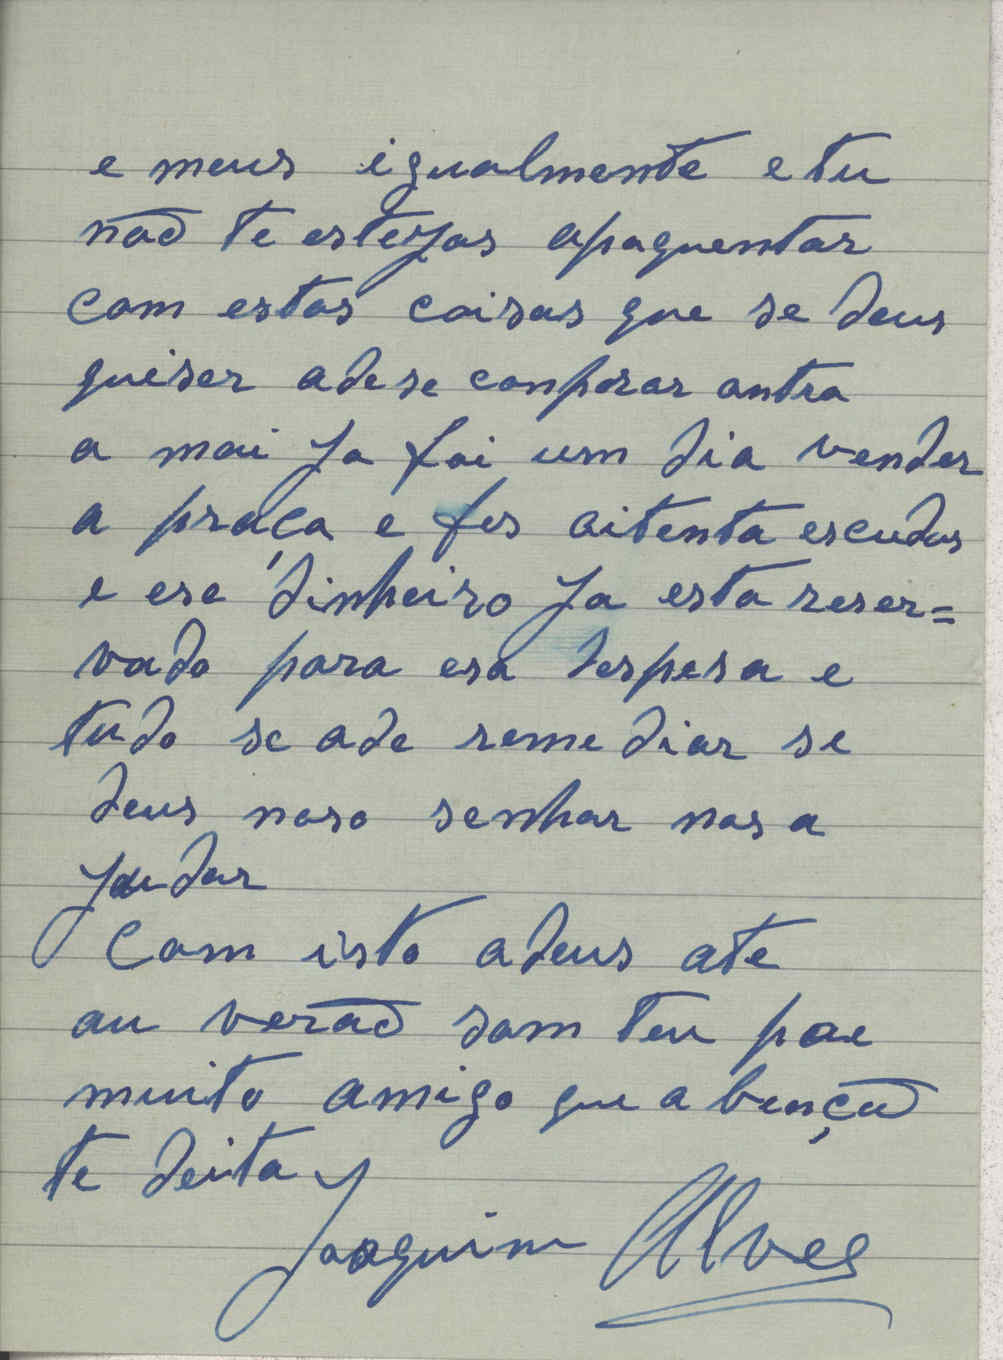 e meus igualmente e tu
não te estejas apoquentar
com estas coisas que se deus
quiser ade se comprar outra
a mai ja foi um dia vender
a praça e fes oitenta escudos
e ese dinheiro ja esta reser=
vado para esa despesa e
tudo se ade remediar se
deus noso senhor nos a
judar
Com isto adeus ate
au verão som teu pae
muito amigo que a bençaõ
te deita
Joaquim Alves